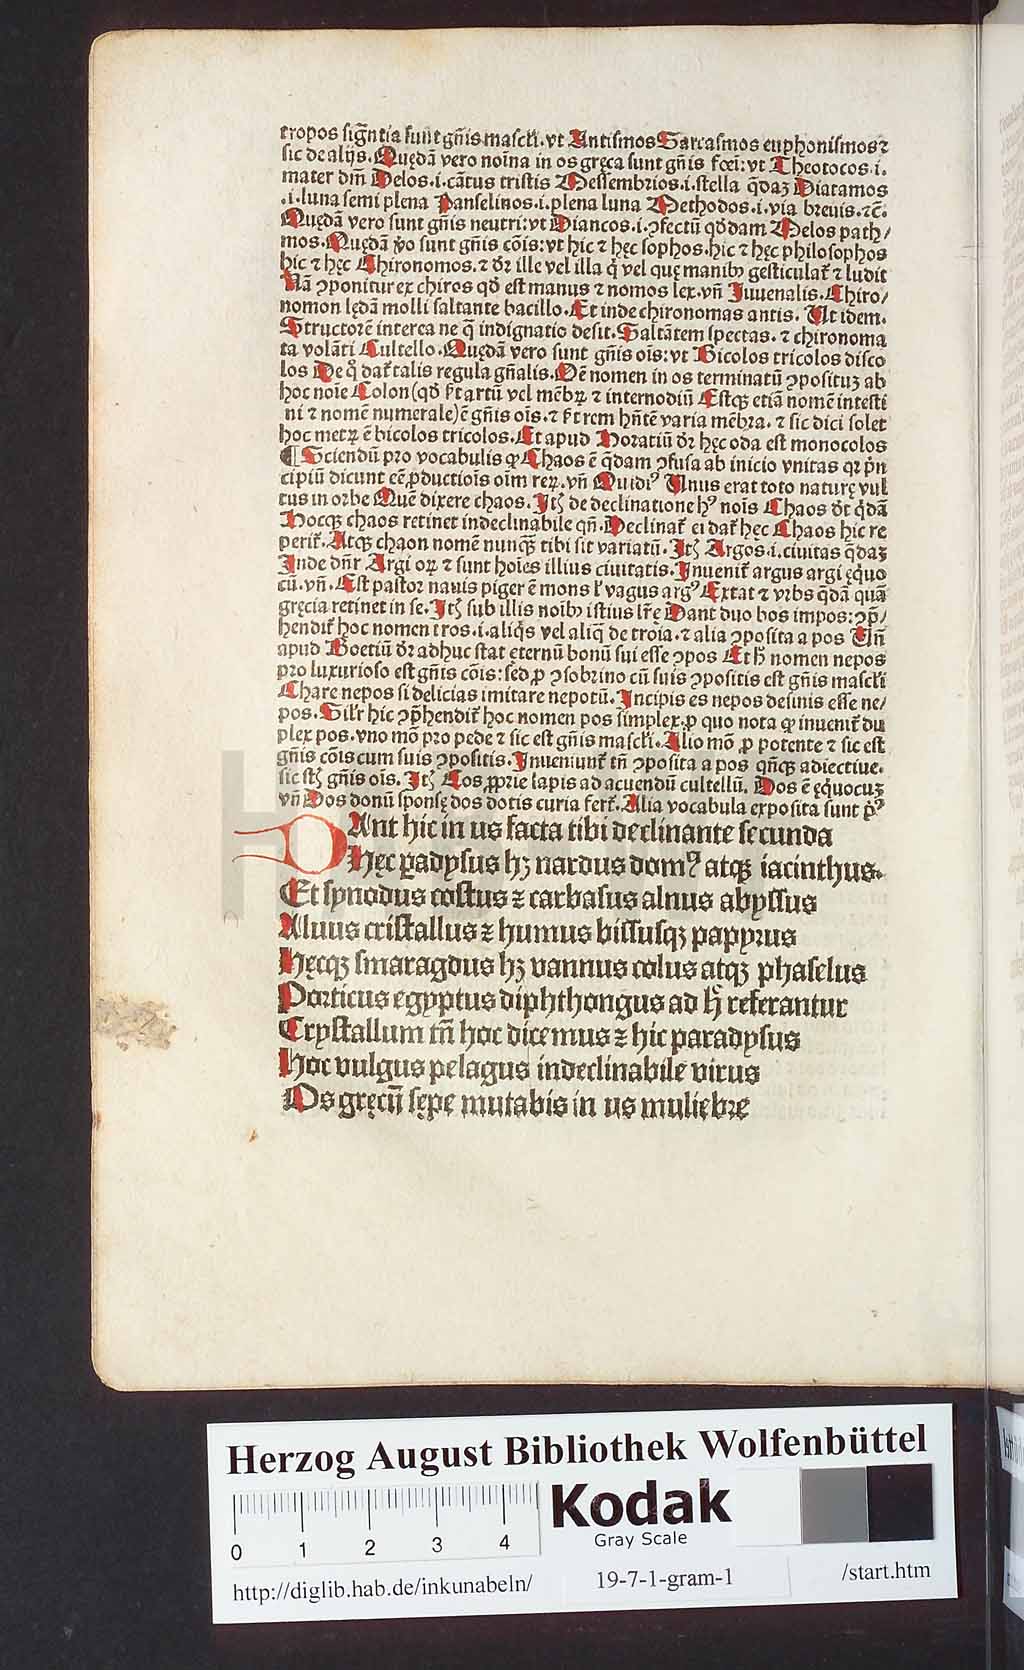 tropos sign̄tia sunt gn̄is mascl̄i. vt Antismos Sarcasmos euphonismos ⁊
sic de alijs. Quędā vero noīna in os gręca sunt gn̄is fœi: vt Theotocos .i.
mater dn̄i Delos .i. cātus tristis Messembrios .i. stella q̄daꝫ Diatamos
.i. luna semi plena Panselinos .i. plena luna Methodos .i. via breuis. ⁊c̄.
Quędā vero sunt gn̄is neutri: vt Diancos .i. ꝯfectū qd̄dam Melos path/
mos. Quędā ṽo sunt gn̄is cōis: vt hic ⁊ hęc sophos. hic ⁊ hęc philosophos
hic ⁊ hęc Chironomos. ⁊ d̄r ille vel illa q̄ vel quę manibꝰ gesticulat̄ ⁊ ludit
Nā ꝯponitur ex chiros qd̄ est manus ⁊ nomos lex. vn̄ Juuenalis. Chiro/
nomon ledā molli saltante bacillo. Et inde chironomas antis. Ut idem.
Structorē interea ne q̄ indignatio desit. Saltātem spectas. ⁊ chironoma
ta volāti Cultello. Quędam vero sunt gn̄is oīs: vt Bicolos tricolos disco
los De qͥ dat̄ talis regula gn̄alis. Oē nomen in os terminatū ꝯposituꝫ ab
hoc noīe Colon (qd̄ st̄ artū vel mēbꝝ ⁊ internodiū Estqꝫ etiā nomē intesti
ni ⁊ nomē numerale) ē gn̄is oīs. ⁊ st̄ rem hn̄tē varia mēbra. ⁊ sic dici solet
hoc metꝝ ē bicolos tricolos. Et apud Horatiū d̄r hęc oda est monocolos
¶ Sciendū pro vocabulis ꝙ Chaos ē q̄dam ꝯfusa ab inicio vnitas qꝛ pͥn
cipiū dicunt eē ꝓductiōis oīm reꝝ. vn̄ Ouidiꝰ Unus erat toto naturę vul
tus in orbe Quē dixere chaos. Itꝫ de declinatione hꝰ noīs Chaos d̄t q̄dā
Hocqꝫ chaos retinet indeclinabile qn̄. Declinat̄ ei dat̄ hęc Chaos hic re
perit̄. Atqꝫ chaon nomē nunqꝫ tibi sit variatū. Itꝫ Argos .i. ciuitas q̄daꝫ
Inde dn̄r Argi oꝝ ⁊ sunt hoīes illius ciuitatis. Inuenit̄ argus argi ęq̇uo
cū. vn̄. Est pastor nauis piger ē mons l̄ vagus argꝰ Extat ⁊ vrbs q̄dā quā
gręcia retinet in se. Itꝫ sub illis noībꝰ istius lr̄e Dant duo bos impos: ꝯp̄/
hendit̄ hoc nomen tros .i. aliqͥs vel aliq̄ de troia. ⁊ alia ꝯposita a pos Un̄
apud Boetiū d̄r adhuc stat eternū bonū sui esse ꝯpos Et h̄ nomen nepos
pro luxurioso est gn̄is cōis: sed ꝓ ꝯsobrino cū suis ꝯpositis est gn̄is mascl̄i
Chare nepos si delicias imitare nepotū. Incipis es nepos desinis esse ne/
pos. Silr̄ hic ꝯp̄hendit̄ hoc nomen pos simplex. ꝓ quo nota ꝙ inuenit̄ du
plex pos. vno mō pro pede ⁊ sic est gn̄is mascl̄i. Alio mō ꝓ potente ⁊ sic est
gn̄is cōis cum suis ꝯpositis. Inueniunt̄ tn̄ ꝯposita a pos qn̄qꝫ adiectiue.
sic stꝫ gn̄is oīs. Itꝫ Cos ꝓprie lapis ad acuendū cultellū. Dos ē ęq̇uocuꝫ
vn̄ Dos donū sponsę dos dotis curia fert̄. Alia vocabula exposita sunt pͥꝰ
DAnt hic in us facta tibi declinante secunda
Hęc ꝑadysus hꝫ nardus domꝰ atqꝫ iacinthus.
Et synodus costus ⁊ carbasus alnus abyssus
Aluus cristallus ⁊ humus bissusqꝫ papyrus
Hęcqꝫ smaragdus hꝫ vannus colus atqꝫ phaselus
Porticus egyptus diphthongus ad h̄ referantur
Crystallum tn̄ hoc dicemus ⁊ hic paradysus
Hoc vulgus pelagus indeclinabile virus
Os gręcū sępe mutabis in us muliebre
Herzog August Bibliothek Wolfenbüttel
Kodak
Gray Scale
0 1 2 3 4
http://diglib.hab.de/inkunabeln/ 19-7-1-gram-1 /start.htm